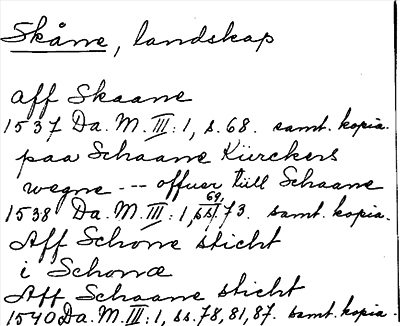 Skåne, landskap
aff Skaane
1537 Da. M. III: 1, s. 68. samt. kopia.
paa Schaane Kürckers
wegne --- offuer tüll Schaane
1538 Da. M. III: 1, ss. 69, 73. samt. kopia.
Aff Schone sticht
i Schonæ
Aff Schaane sticht
1540 Da. M. III: 1, ss. 78, 81, 87. samt. kopia.